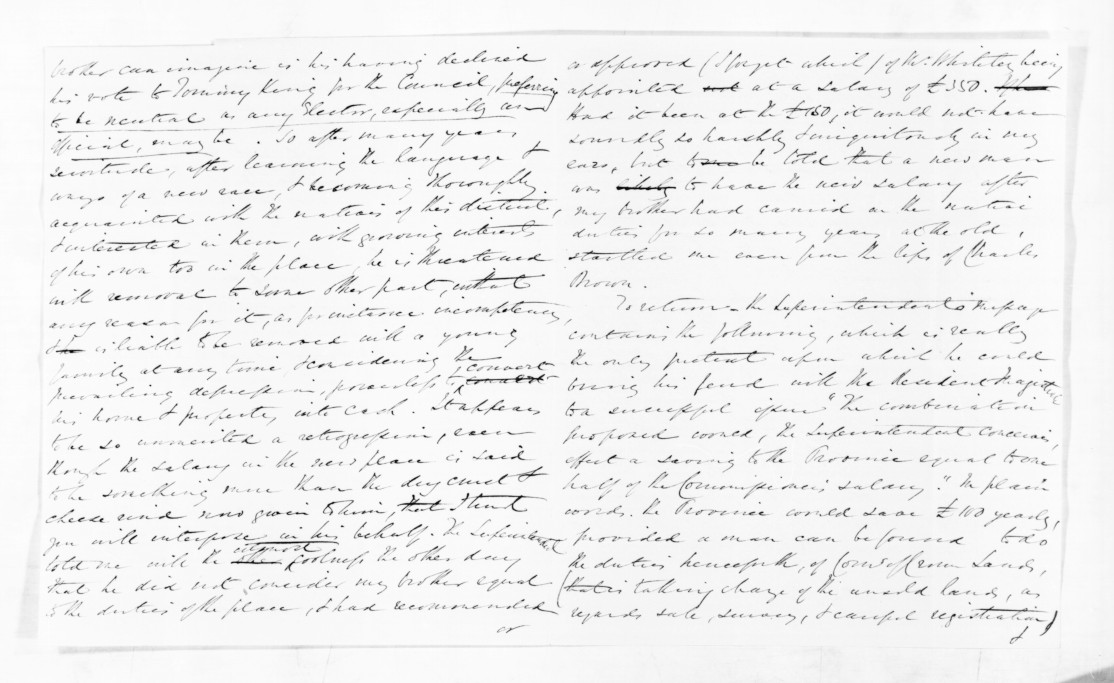 brother can imagine is his having declined
his vote to Tommy King for the Council, preferring
to be neutral as any Elector, especially an
official, may be. So after many years
servitude, after learning the language &
ways of a new race, & becoming thoroughly
acquainted with the natives of this district,
& interested in them, with growing interests
of his own too in the place, he is threatened
with removal to some other part, without
any reason for it, as for instance incompetency,
& is liable to be removed with a young
family at any time, & considering the
prevailing depression, powerless to convert
his home & property into cash. It appears
to be so unmerited a retrogression, even
though the salary in the new place is said
to be something more than the dry crust &
cheese rind now given to him, that I trust
you will interpose in his behalf. The Superintendent
told me with the utmost coolness the other day
that he did not consider my brother equal
to the duties of the place, & had recommended
or
or approved (I forget which) of Mr Whiteley being
appointed at a salary of £350.
Had it been at the £150, it would not have
sounded so harshly & iniquitously in my
ears, but to be told that a new man
was to have the new salary after
my brother had carried on the native
duties for so many years at the old,
startled me even from the lips of Charles
Brown.
To return - the Superintendent's Message
contains the following, which is really
the only pretext upon which he could
bring his feud with the Resident Magistrate
to a successful issue "The combination
proposed would, the Superintendent conceives,
effect a saving to the Province equal to one
half of the Commissioner's salary." In plain
words. the Province would save £100 yearly,
provided a man can be found to do
the duties henceforth, of Comr of Crown Lands,
(that is taking charge of the unsold lands, as
regards sale, survey, & careful registration)
&